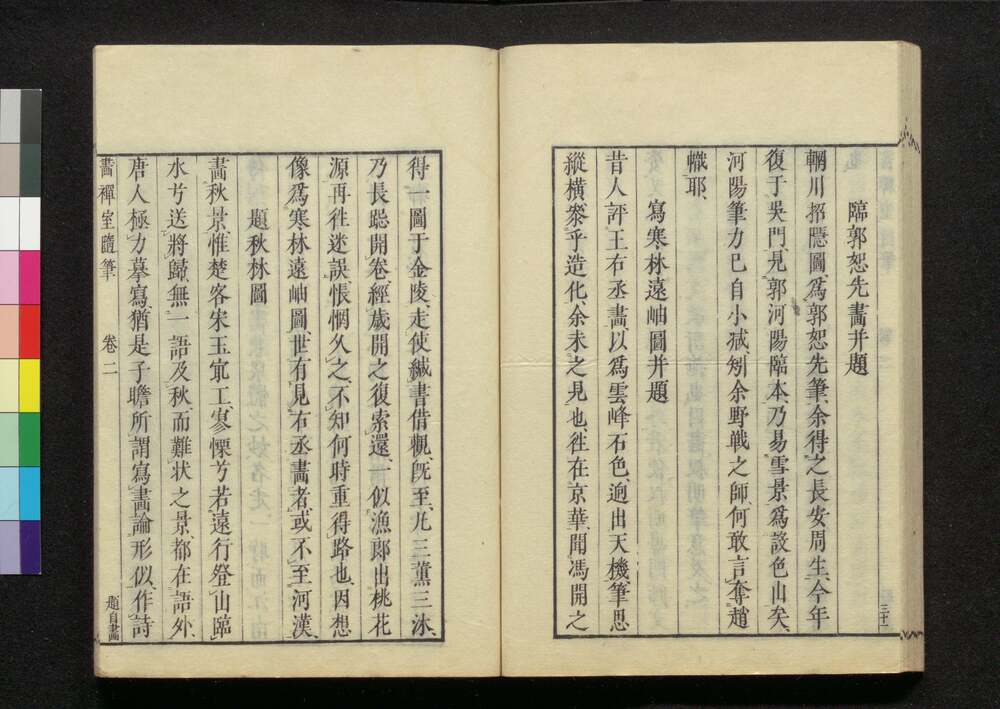 臨郭恕先畫并題
輞川招隱圖、爲郭恕先筆、余得之長安周生、今年
復于吳門、見郭河陽臨本、乃易雪景爲設色山矣、
河陽筆力已自小減、矧余野戰之師、何敢言奪趙
幟耶、
寫寒林遠岫圖并題
昔人評王右丞畫、以爲雲峰石色、迥出天機、筆思
縱横、叅乎造化、余未之見也、往在京華、聞馮開之
三十一
得一圖于金陵、走使緘書借觀、旣至、凡三薰三沐、
乃長跽開卷、經歲開之復索還、一似漁郎出桃花
源再往迷誤、悵惘久之、不知何時重得路也、因想
像爲寒林遠岫圖、世有見右丞畫者、或不至河漢、
題秋林圖
畫秋景、惟楚客宋玉㝡工、寥慄兮若遠行、登山臨
水兮送將歸、無一語及秋、而難狀之景、都在語外、
唐人極力摹寫、猶是子瞻所謂寫畫論形似、作詩
畫禪室隨筆 卷二 題自畫